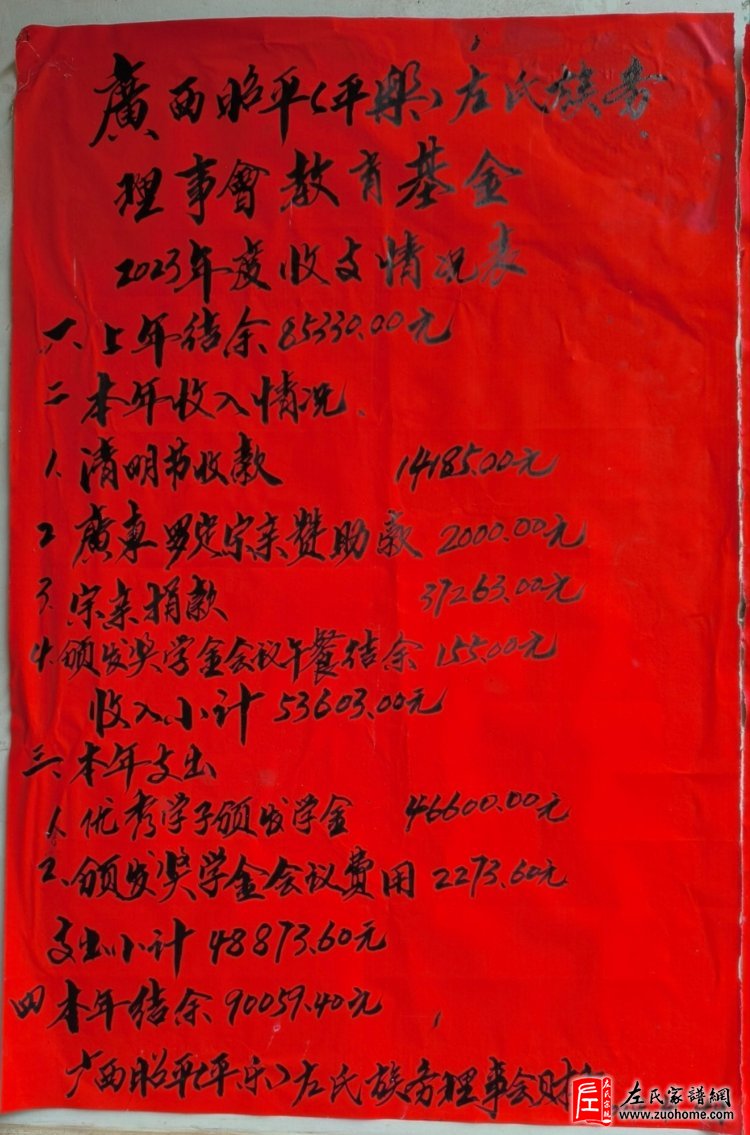 廣西昭平(平樂)左氏族务
理事會教育基金
2023年度收支情况表
一、上年结余85330.00元
二本年收入情况、
1、清明节收款 14185.00元
2 廣東罗定宗亲赞助款 2000.00元
3、宗亲捐款 37263.00元
4.颁发奖学金会议午餐结余 155.00元
收入小计 53603.00元
三、本年支出
1、优秀学子颁发学金 46600.00元
2、颁发奖学金会议费用 2273.60元
支出小计 48873.60元
四本年结余90059.40元
广西昭平(平乐)左氏族务理事会财
左氏家譜網
www.zuohome.com